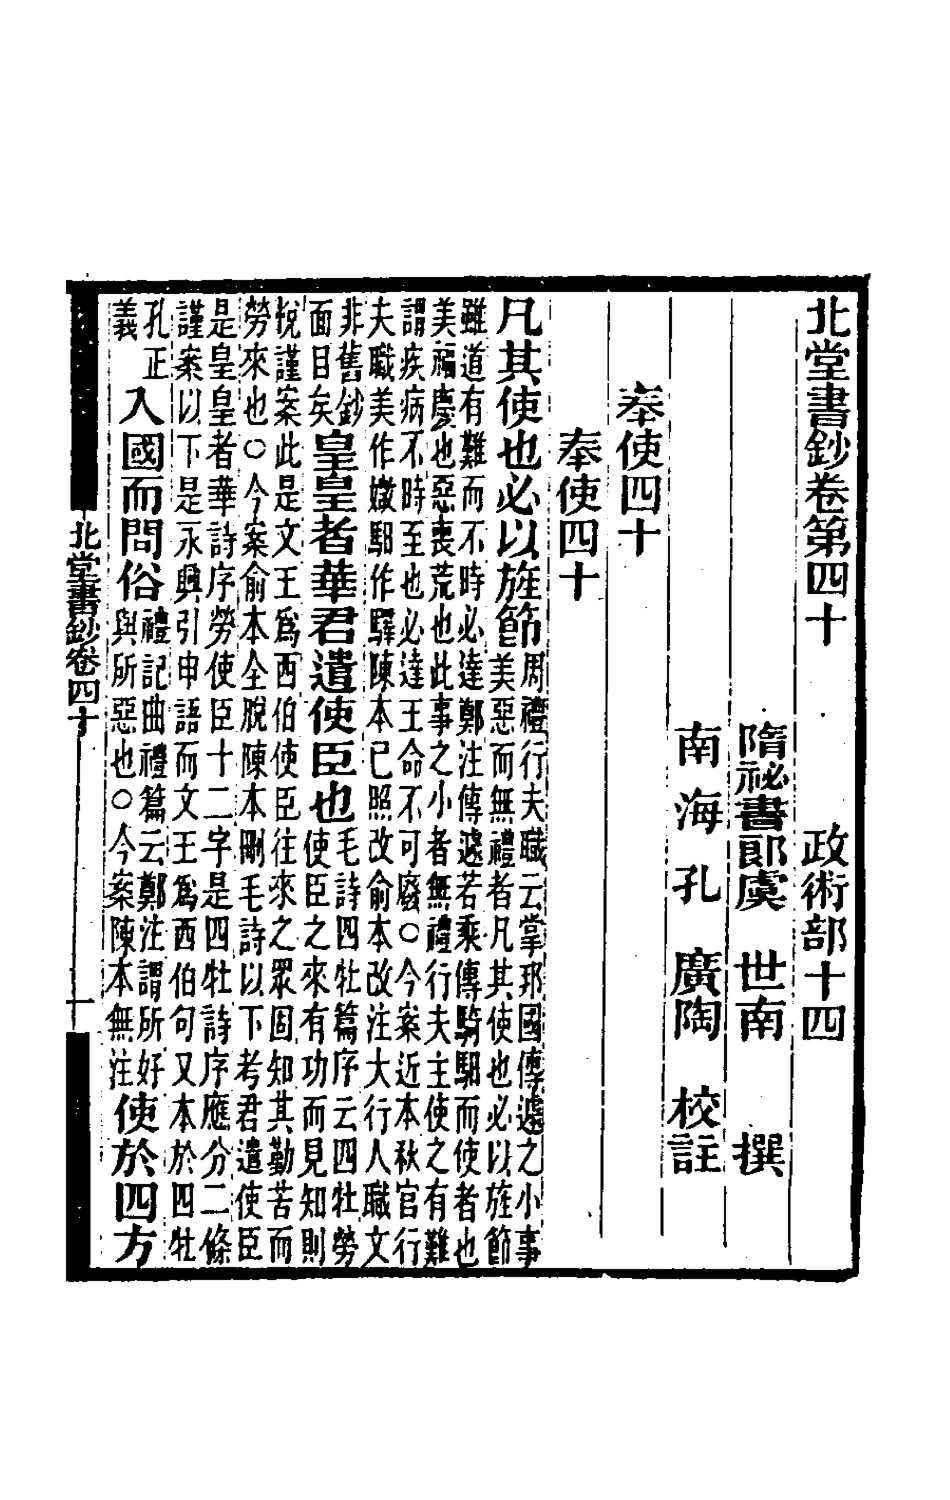 北堂書鈔卷第四十　政術部十四
隋祕書郎虞　世南　撰
南海孔　廣陶　校註
奉使四十
奉使四十
凡其使也必以旌節
周禮行夫職云掌邦國傳遽之小事
美惡而無禮者凡其使也必以旌節
雖道有難而不時必達鄭注傳遽若乘傳騎馹而使者也
美福慶也惡喪荒也此事之小者無禮行夫主使之有難
謂疾病不時至也必達王命不可廢○今案近本秋官行
夫職美作媺馹作驛陳本已照改俞本改注大行人職文
非舊鈔
面目矣
皇皇者華君遣使臣也
毛詩四牡篇序云四牡勞
使臣之來有功而見知則
悅謹案此是文王爲西伯使臣往來之眾固知其勤苦而
勞來也○今案俞本全脫陳本刪毛詩以下考君遣使臣
是皇皇者華詩序勞使臣十二字是四牡詩序應分二條
謹案以下是永興引申語而文王爲西伯句又本於四牡
孔正
義
入國而問俗
禮記曲禮篇云鄭注謂所好
與所惡也○今案陳本無注
使於四方
北堂書鈔卷四十
一